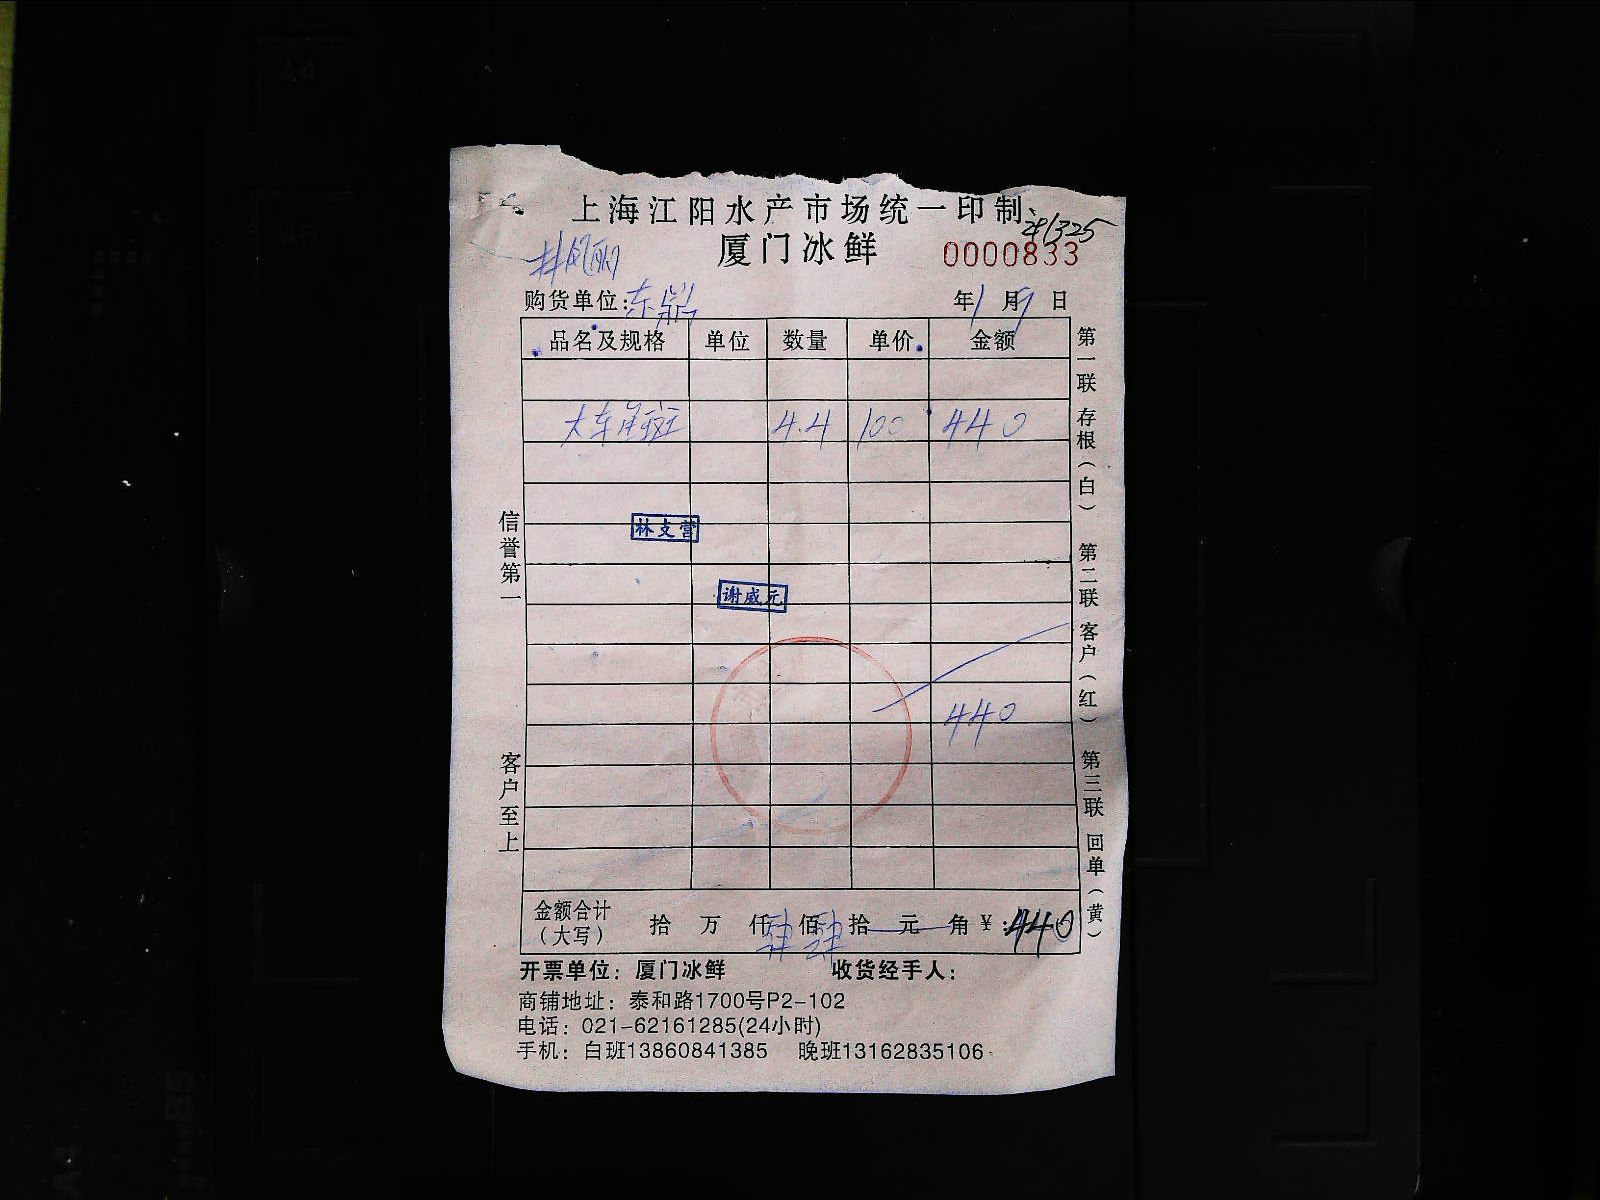 上海江阳水产市场统一印制
厦门冰鲜
0000833
购货单位:东鼎 年1月9日
品名及规格 单位 数量 单价 金额
大东星斑 4.4 100 440
林支营
谢威元
440
金额合计(大写) 拾 万 仟肆佰肆拾 元 角 ¥:440
开票单位:厦门冰鲜 收货经手人:
商铺地址:泰和路1700号P2-102
电话:021-62161285(24小时)
手机:白班13860841385 晚班13162835106
信誉第一 客户至上
第一联 存根(白) 第二联 客户(红) 第三联 回单(黄)
A4
B5
A4